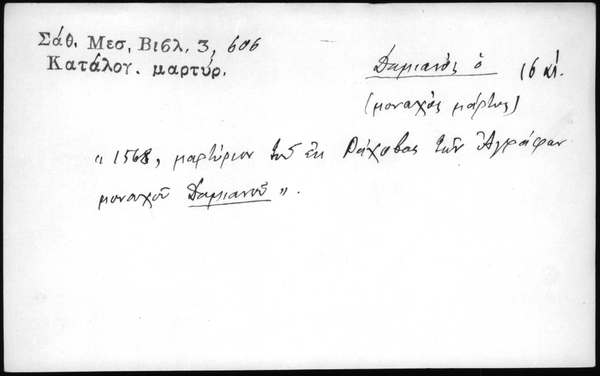 Σάθ. Μεσ, Βιβλ. 3, 606
Κατάλογ. μαρτύρ.
Δαμιανὸς ὁ 16 αἰ.
(μοναχὸς μάρτυς)
„ 1568, μαρτύριον τοῦ ἐκ Ῥάχοβας τῶν Ἀγράφων
μοναχοῦ Δαμιανοῦ „.